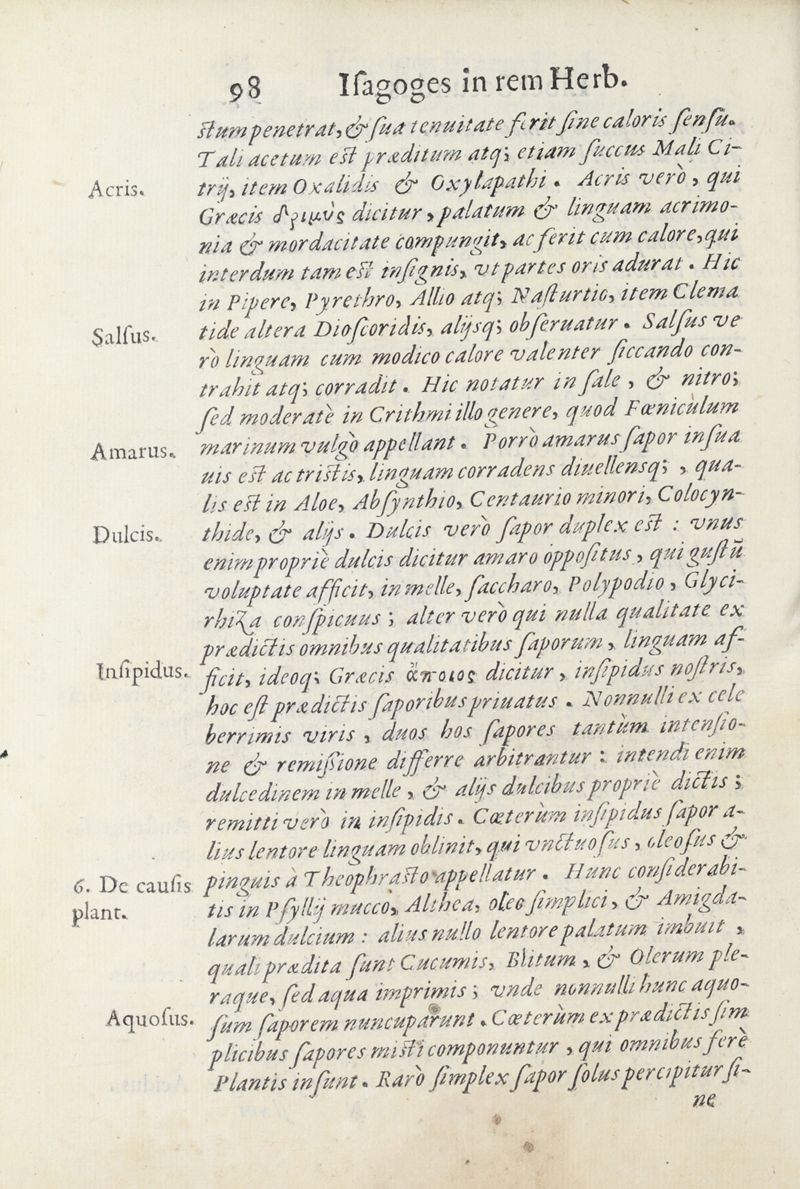 98 Iſagoges in rem Herb.
ſtum penetrat, & ſua tenuitate ferit ſine caloris ſenſu.
Tali acetum eſt præditum atq; etiam ſuccus Mali Ci-
Acris.
trij, item Oxalidis & Oxylapathi. Acris verò, qui
Græcis δριμὺς dicitur, palatum & linguam acrimo-
nia & mordacitate compungit, ac ferit cum calore, qui
interdum tam eſt inſignis, vt partes oris adurat. Hic
in Pipere, Pyrethro, Allio atq; Naſturtio, item Clema
Salſus.
tide altera Dioſcoridis, alijsq; obſeruatur. Salſus ve
rò linguam cum modico calore valenter ſiccando con-
trahit atq; corradit. Hic notatur in ſale, & nitro;
ſed moderatè in Crithmi illo genere, quod Fœniculum
Amarus.
marinum vulgò appellant. Porrò amarus ſapor inſua
uis eſt ac triſtis, linguam corradens diuellensq;, qua-
lis eſt in Aloe, Abſynthio, Centaurio minori, Colocyn-
Dulcis.
thide, & alijs. Dulcis verò ſapor duplex eſt : vnus
enim propriè dulcis dicitur amaro oppoſitus, qui guſtũ
voluptate afficit, in melle, ſaccharo, Polypodio, Glyci-
rhiza conſpicuus; alter verò qui nulla qualitate ex
prædictis omnibus qualitatibus ſaporum, linguam af-
Inſipidus.
ficit, ideoq; Græcis ἄποιος dicitur, inſipidus noſtris,
hoc eſt prædictis ſaporibus priuatus. Nonnulli ex cele
berrimis viris, duos hos ſapores tantùm intenſio-
ne & remiſsione differre arbitrantur : intendi enim
dulcedinem in melle, & alijs dulcibus propriè dictis;
remitti verò in inſipidis. Cœterùm inſipidus ſapor a-
lius lentore linguam oblinit, qui vnctuoſus, oleoſus &
6. De cauſis
pinguis à Theophraſto appellatur. Hunc conſiderabi-
plant.
tis in Pſyllij mucco, Althea, oleo ſimplici, & Amigda-
larum dulcium : alius nullo lentore palatum imbuit,
quali prædita ſunt Cucumis, Blitum, & Olerum ple-
raque, ſed aqua imprimis; vnde nonnulli hunc aquo-
Aquoſus.
ſum ſaporem nuncuparunt. Cœterùm ex prædictis ſim
plicibus ſapores miſti componuntur, qui omnibus ferè
Plantis inſunt. Rarò ſimplex ſapor ſolus percipitur ſi-
ne